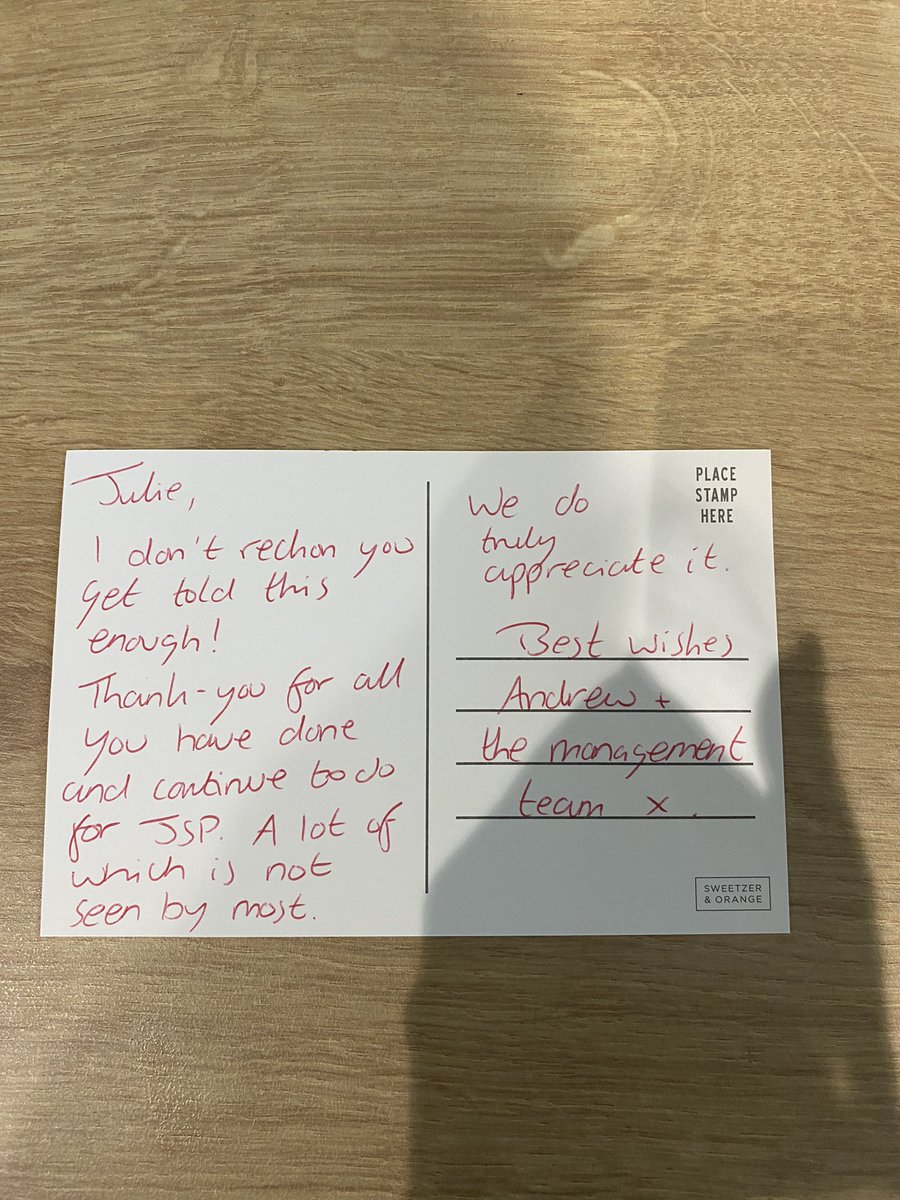 Julie,
I don't reckon you
get told this
enough!
Thank-you for all
you have done
and continue to do
for JSP. A lot of
which is not
seen by most.
We do
truly
appreciate it.
Best wishes
Andrew +
the management
team x.
PLACE
STAMP
HERE
SWEETZER
& ORANGE